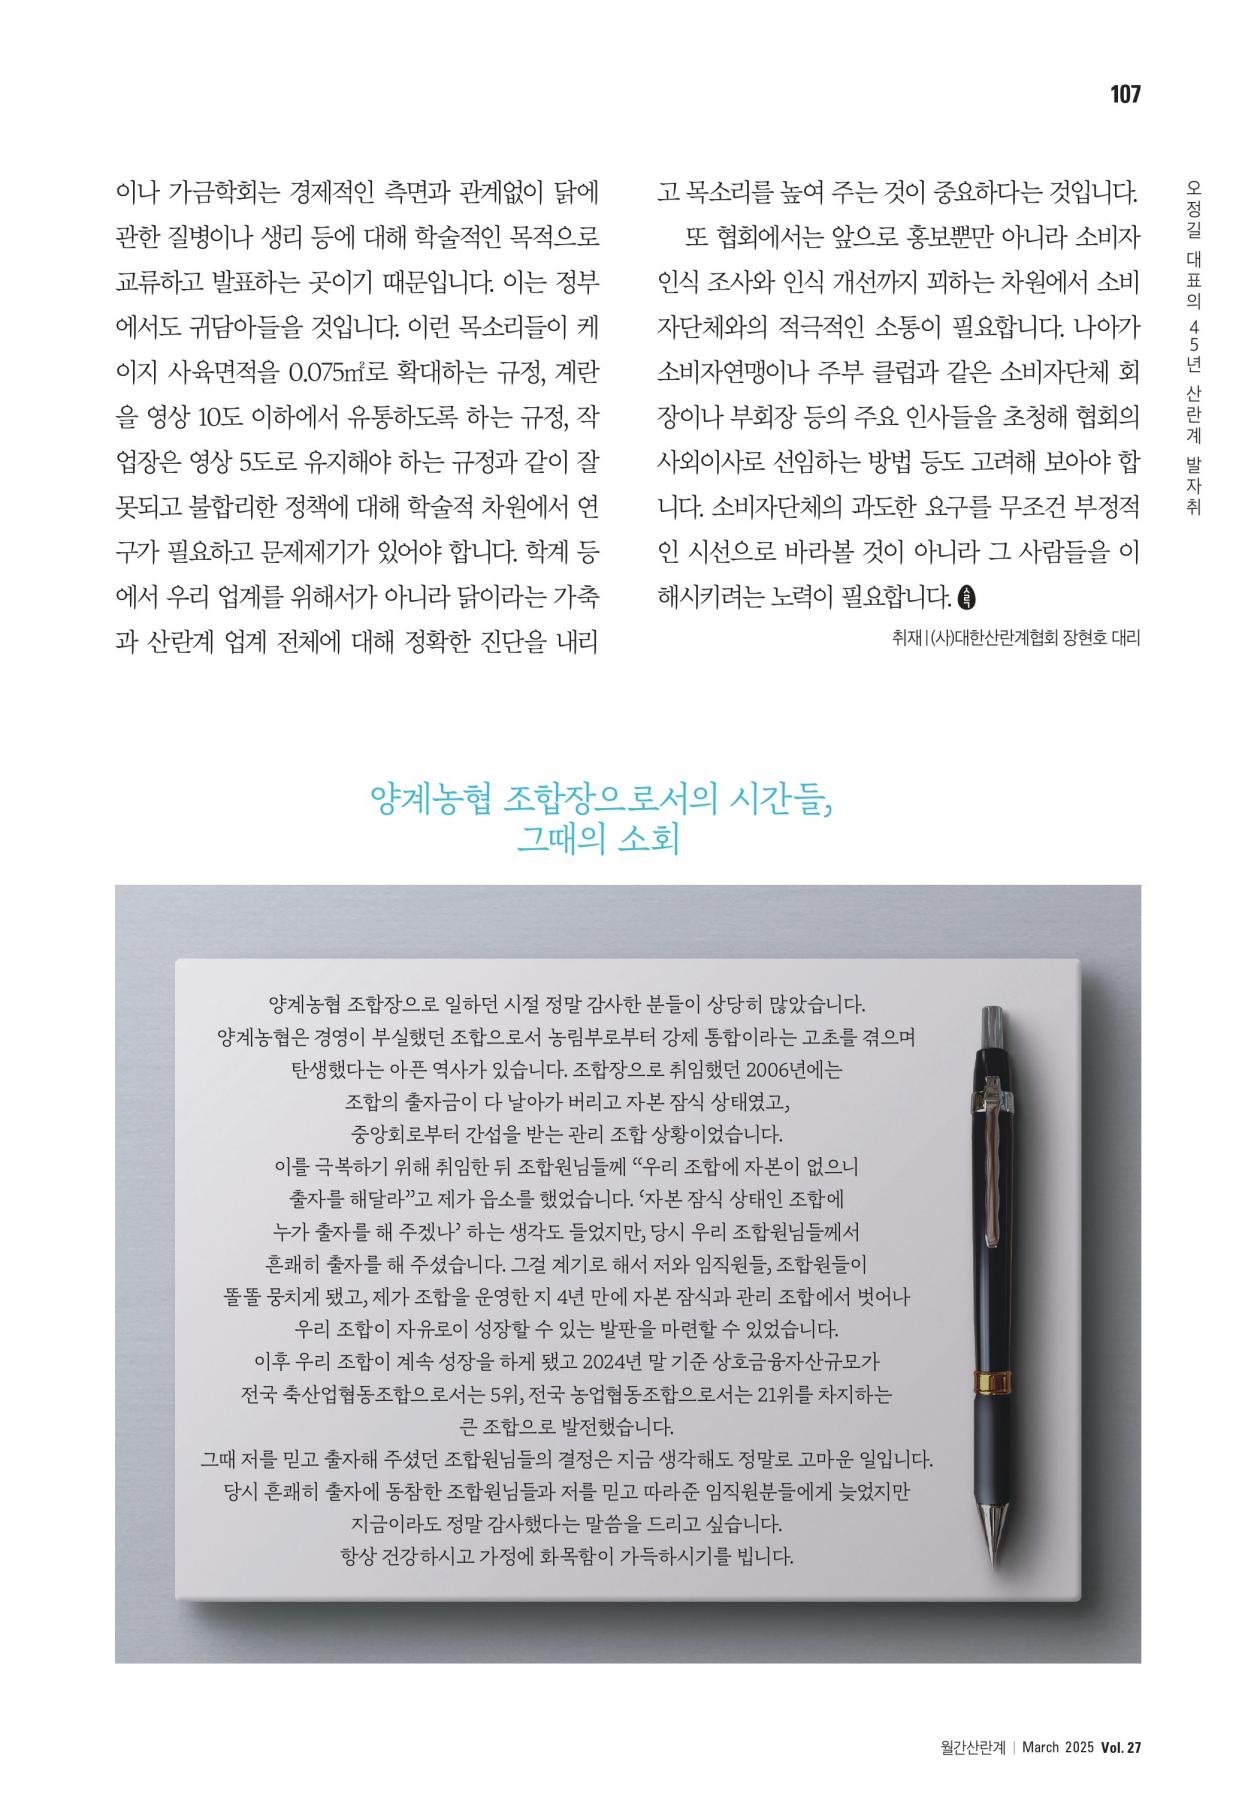 107
이나 가금학회는 경제적인 측면과 관계없이 닭에
관한 질병이나 생리 등에 대해 학술적인 목적으로
교류하고 발표하는 곳이기 때문입니다. 이는 정부
에서도 귀담아들을 것입니다. 이런 목소리들이 케
이지 사육면적을 0.075㎡로 확대하는 규정, 계란
을 영상 10도 이하에서 유통하도록 하는 규정, 작
업장은 영상 5도로 유지해야 하는 규정과 같이 잘
못되고 불합리한 정책에 대해 학술적 차원에서 연
구가 필요하고 문제제기가 있어야 합니다. 학계 등
에서 우리 업계를 위해서가 아니라 닭이라는 가축
과 산란계 업계 전체에 대해 정확한 진단을 내리
고 목소리를 높여 주는 것이 중요하다는 것입니다.
또 협회에서는 앞으로 홍보뿐만 아니라 소비자
인식 조사와 인식 개선까지 꾀하는 차원에서 소비
자단체와의 적극적인 소통이 필요합니다. 나아가
소비자연맹이나 주부 클럽과 같은 소비자단체 회
장이나 부회장 등의 주요 인사들을 초청해 협회의
사외이사로 선임하는 방법 등도 고려해 보아야 합
니다. 소비자단체의 과도한 요구를 무조건 부정적
인 시선으로 바라볼 것이 아니라 그 사람들을 이
해시키려는 노력이 필요합니다.
취재 | (사)대한산란계협회 장현호 대리
오정길 대표의 45년 산란계 발자취
양계농협 조합장으로서의 시간들,
그때의 소회
양계농협 조합장으로 일하던 시절 정말 감사한 분들이 상당히 많았습니다.
양계농협은 경영이 부실했던 조합으로서 농림부로부터 강제 통합이라는 고초를 겪으며
탄생했다는 아픈 역사가 있습니다. 조합장으로 취임했던 2006년에는
조합의 출자금이 다 날아가 버리고 자본 잠식 상태였고,
중앙회로부터 간섭을 받는 관리 조합 상황이었습니다.
이를 극복하기 위해 취임한 뒤 조합원님들께 “우리 조합에 자본이 없으니
출자를 해달라”고 제가 읍소를 했었습니다. ‘자본 잠식 상태인 조합에
누가 출자를 해 주겠나’ 하는 생각도 들었지만, 당시 우리 조합원님들께서
흔쾌히 출자를 해 주셨습니다. 그걸 계기로 해서 저와 임직원들, 조합원들이
똘똘 뭉치게 됐고, 제가 조합을 운영한 지 4년 만에 자본 잠식과 관리 조합에서 벗어나
우리 조합이 자유로이 성장할 수 있는 발판을 마련할 수 있었습니다.
이후 우리 조합이 계속 성장을 하게 됐고 2024년 말 기준 상호금융자산규모가
전국 축산업협동조합으로서는 5위, 전국 농업협동조합으로서는 21위를 차지하는
큰 조합으로 발전했습니다.
그때 저를 믿고 출자해 주셨던 조합원님들의 결정은 지금 생각해도 정말로 고마운 일입니다.
당시 흔쾌히 출자에 동참한 조합원님들과 저를 믿고 따라준 임직원분들에게 늦었지만
지금이라도 정말 감사했다는 말씀을 드리고 싶습니다.
항상 건강하시고 가정에 화목함이 가득하시기를 빕니다.
월간산란계 | March 2025 Vol. 27